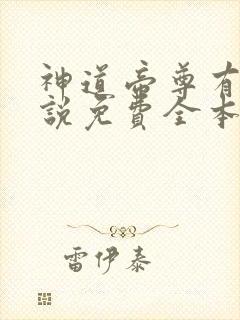 神道帝尊有
說免費全本
雷伊泰